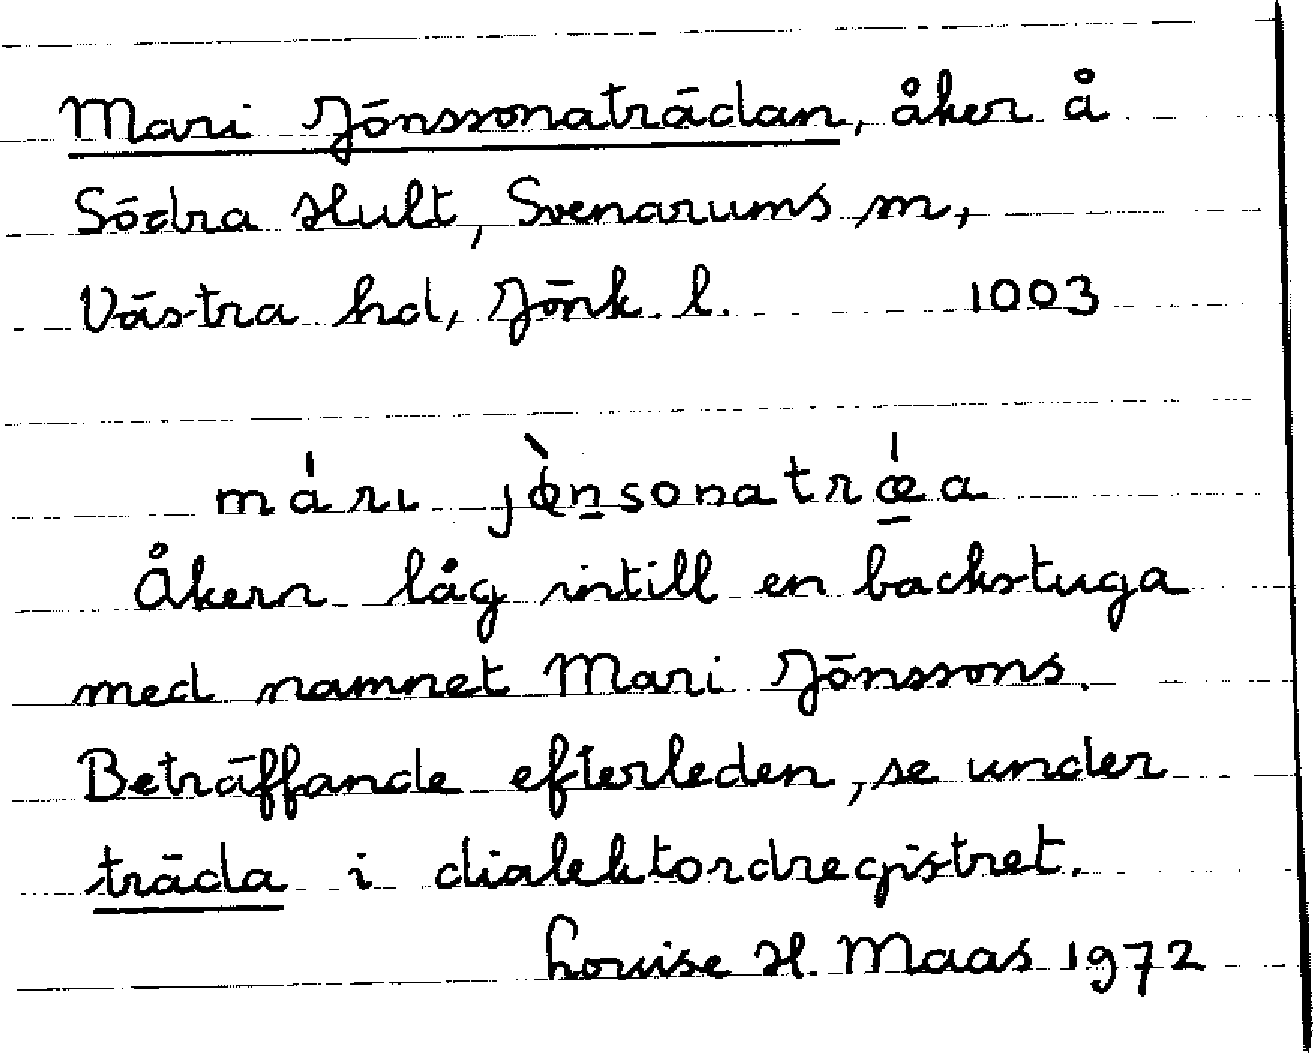 Mari Jönssonaträdan, åker å
Södra Hult, Svenarums sn,
Västra hd, Jönk. l. 1003
mári jø̀n̲sonatrǽ̲a
Åkern låg intill en backstuga
med namnet Mari Jönssons.
Beträffande efterleden, se under
träda i dialektordregistret.
Louise H. Maas 1972